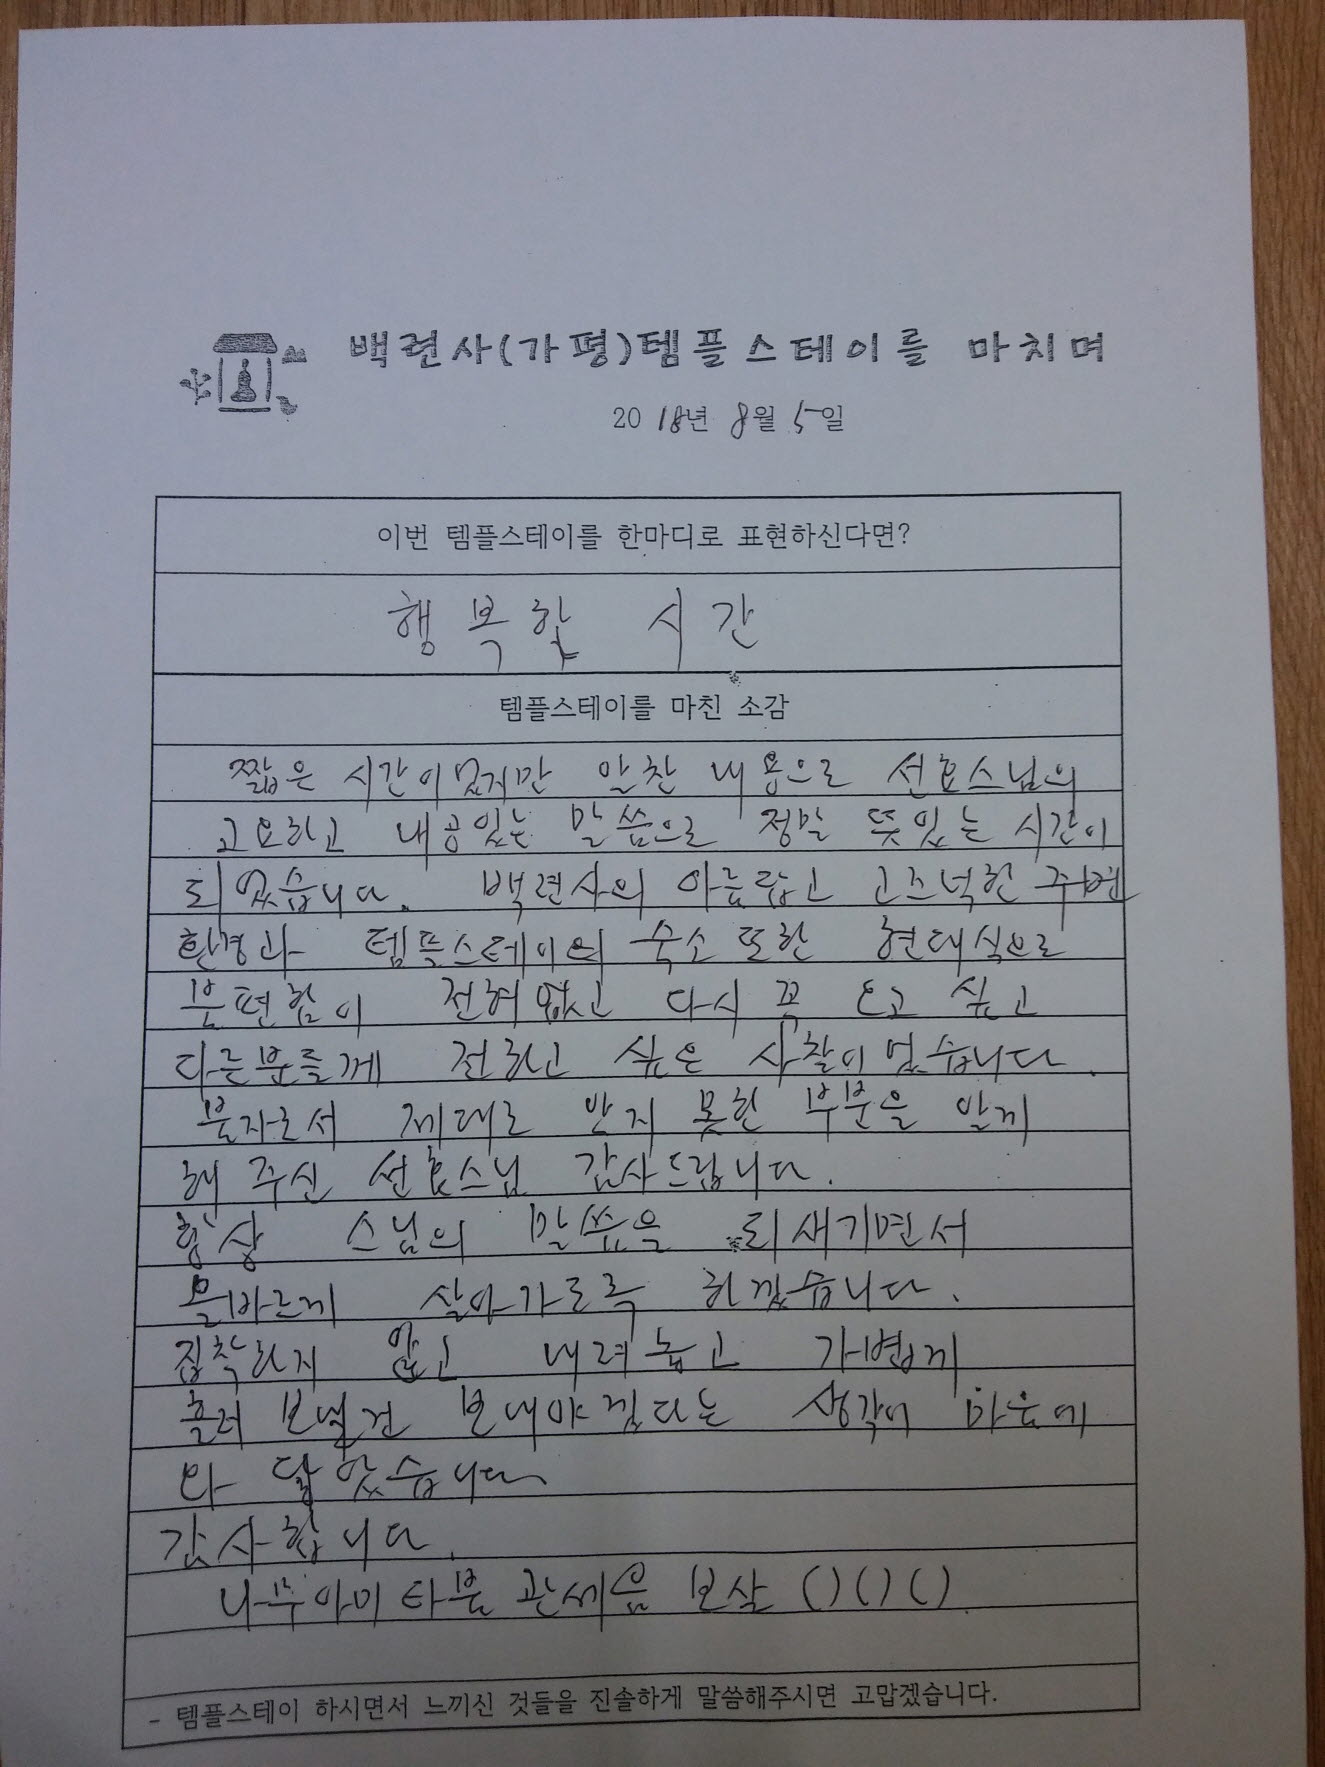 백련사(가평)템플스테이를 마치며
2018년 8월 5일
이번 템플스테이를 한마디로 표현하신다면?
행복한 시간
템플스테이를 마친 소감
짧은 시간이었지만 알찬 내용으로 선효스님의
고요하고 내공있는 말씀으로 정말 뜻있는 시간이
되었습니다. 백련사의 아름답고 고즈넉한 주변
환경과 템플스테이의 숙소 또한 현대식으로
불편함이 전혀 없고 다시 꼭 오고 싶고
다른분들께 전하고 싶은 사찰이었습니다.
불자로서 제대로 알지 못한 부분을 알게
해 주신 선효스님 감사드립니다.
항상 스님의 말씀을 되새기면서
올바르게 살아가도록 하겠습니다.
집착하지 않고 내려놓고 가볍게
흘려 보낼건 보내야겠다는 생각이 마음에
와 닿았습니다
감사합니다.
나무아미타불 관세음 보살 ( ) ( ) ( )
- 템플스테이 하시면서 느끼신 것들을 진솔하게 말씀해주시면 고맙겠습니다.